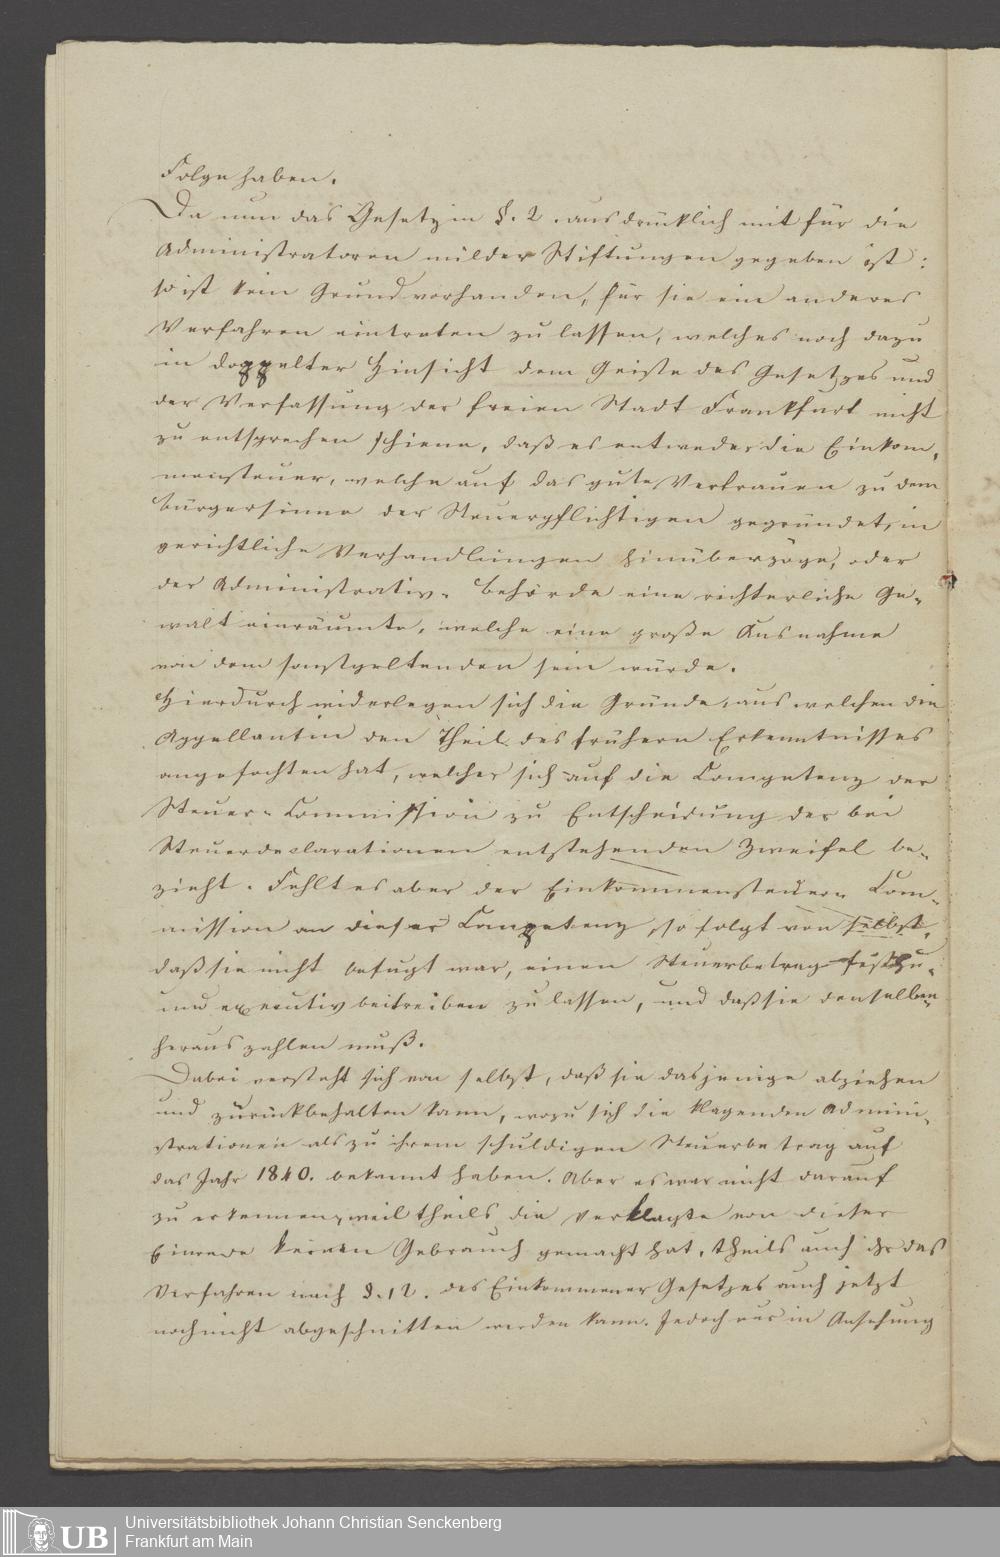 Folge haben.
Da nun das Gesetz in §. 2. ausdrücklich mit für die
Administratoren milder Stiftungen gegeben ist:
so ist kein Grund vorhanden, für sie ein anderes
Verfahren eintreten zu lassen, welches noch dazu
in doppelter Hinsicht dem Geiste des Gesetzes und
der Verfassung der freien Stadt Frankfurt nicht
zu entsprechen schiene, daß es entweder die Einkom-
mensteuer, welche auf das gute Vertrauen zu dem
Bürgersinne der Steuerpflichtigen gegründet, in
gerichtliche Verhandlungen hinüberzöge, oder
der Administrativ-Behörde eine richterliche Ge-
walt einräumte, welche eine große Ausnahme
von dem sonst geltenden sein würde.
Hierdurch widerlegen sich die Gründe, aus welchen die
Appellantin den Theil des frühern Erkenntnisses
angefochten hat, welcher sich auf die Competenz der
Steuer-Commission zu Entscheidung der bei
Steuerdeclarationen entstehenden Zweifel be-
zieht. Fehlt es aber der Einkommensteuer-Com-
mission an dieser Competenz, so folgt von selbst,
daß sie nicht befugt war, einen Steuerbetrag festzu-
und executiv beitreiben zu lassen, und daß sie denselben
herauszahlen muß.
Dabei versteht sich von selbst, daß sie dasjenige abziehen
und zurückbehalten kann, wozu sich die klagenden Admini-
strationen als zu ihrem schuldigen Steuerbetrag auf
das Jahr 1840. bekannt haben. Aber es war nicht darauf
zu erkennen, weil theils die Verklagte von dieser
Einrede keinen Gebrauch gemacht hat, theils auch ihr das
Verfahren nach §. 12. des Einkommener Gesetzes auch jetzt
noch nicht abgeschnitten werden kann. Jedoch nur in Ansehung
UB Universitätsbibliothek Johann Christian Senckenberg
Frankfurt am Main